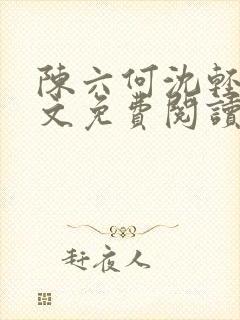 陳六何沈輕
文免費閱讀
赶夜人